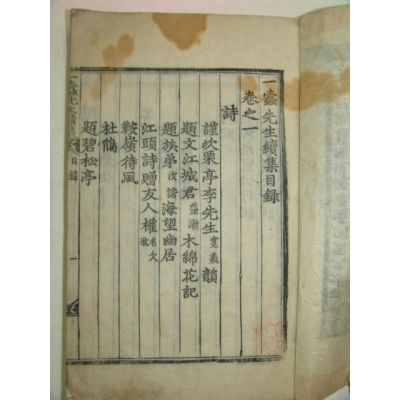 一蠹先生續集目錄
卷之一
詩
謹次栗亭李先生寬義韻
題文江城君益漸木綿花記
題族弟汝諧海望幽居
江頭詩贈友人權名欠故
鞍嶺待風
杜鵑
題碧松亭
目錄
一